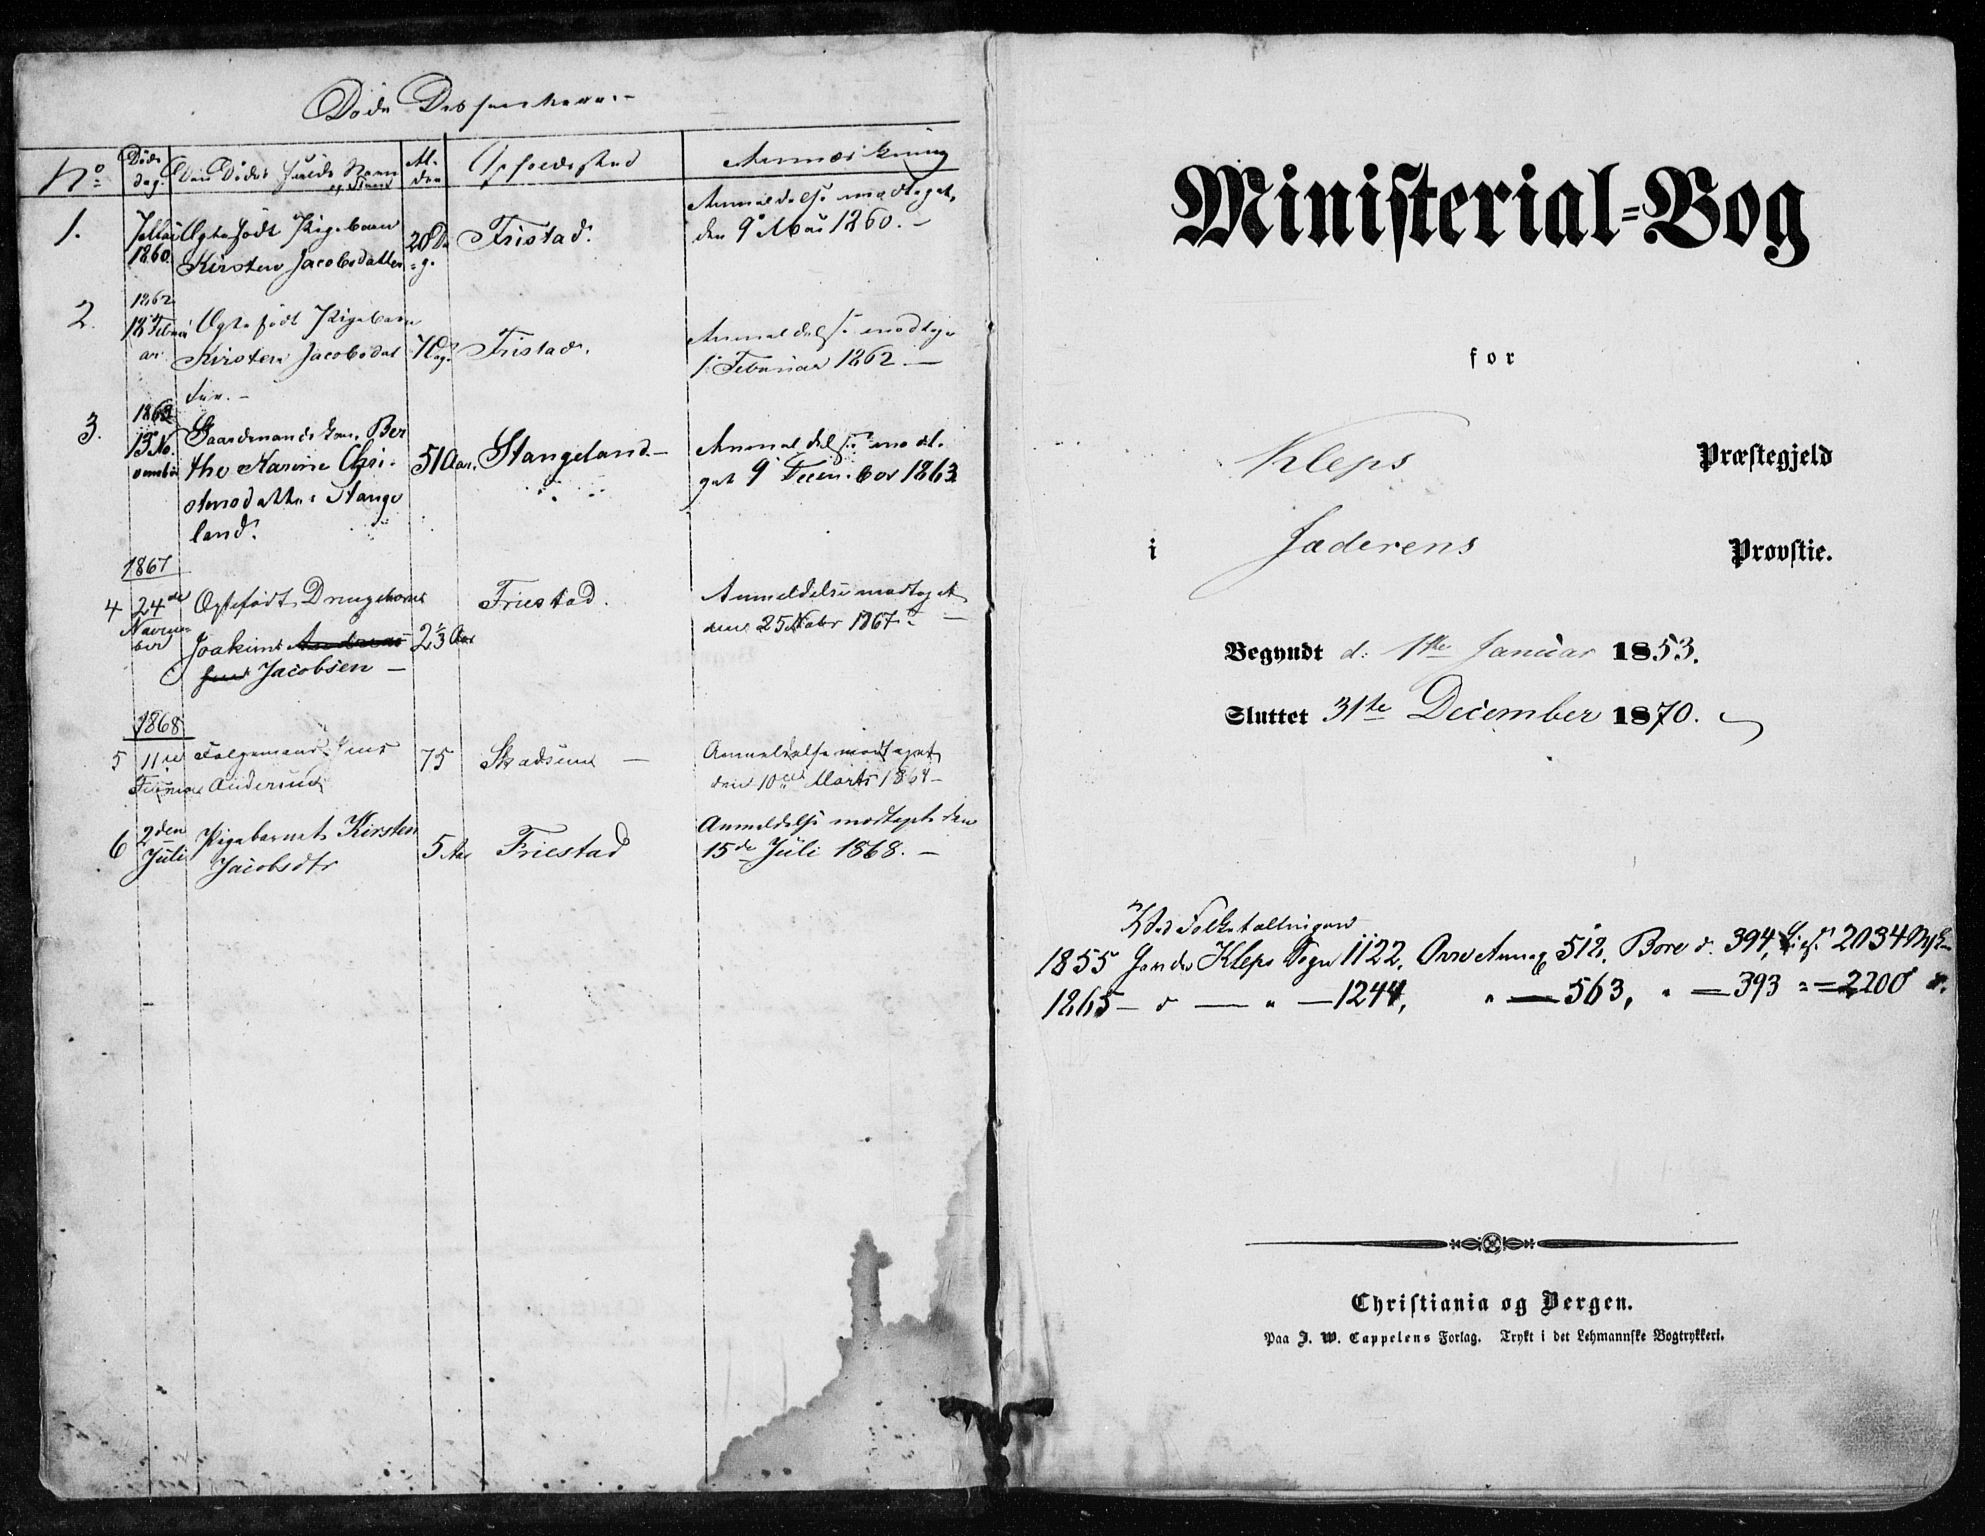 Døde Dissentere.
No
Døds dag.
Den Dødes fulde Navn og Stand
Al- der
Opholdssted
Anmærkning
1.
7 Mai 1860.
Ægtefødt Pigebarn
Kirsten Jacobsdatter
20 Da- g.
Fristad.
Anmeldelse modtaget,
den 9 Mai 1860. –
2.
1862
Februar
Ægtefødt Pigebarn
Kirsten Jacobsdat
ter. –
Fristad.
Anmeldelse modtage
1 Februar 1862. —
3.
Gaardmandskone Ber
the Karine Chri-
stensdatter Stange
land.
51 Aar.
Stangeland. –
Anmeldelse modt-
get 9 December 1863
1867
4
24de
Novem- ber
Ægtefødt Drengebarn
Joakim
Jacobsen –
2⅓ Aar
Friestad.
Anmeldelse modtaget
den 25 Novbr 1867. –
1868
5
11te
Anderssen
75
Skadsem –
Anmeldelse modtaget
den 10de Marts 186
6
2den
Juli
Pigebarnet Kirsten
Jacobsdtr
5 Aar
Friestad
Anmeldelse modtaget den
15de Juli 1868. –
Ministerial-Bog
for
Kleps Præstegjeld
i Jæderens Provstie.
Begyndt d. 1ste Januar 1853.
Sluttet 31te December 1870.
Ved Folketællingen
1855 Kleps Sogn 1122, Orre Annex 512, Bore d. 394, 2034
1865 – d — " — 1244, " — 563, " — 393 = 2200
Christiania og Bergen.
Paa J. W. Cappelens Forlag. Trykt i det Lehmannske Bogtrykkeri.